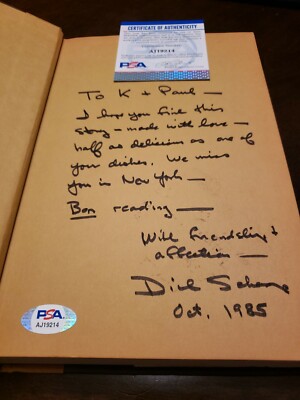 CERTIFICATE OF AUTHENTICITY
AJ19214
PSA
To K + Paul —
I hope you find this
story — made with love —
half as delicious as one of
your dishes. We miss
you in New York —
Bon reading —
With friendship &
affection —
Dick
Oct. 1985
PSA
AJ19214